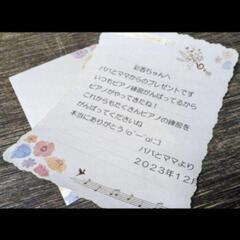 彩香ちゃんへ
パパとママからのプレゼントです
いつもピアノ練習がんばってるから
ピアノがやってきたね！
これからもたくさんピアノの練習を
がんばってくださいね
本当にありがとう
パパとママより
2023年12月